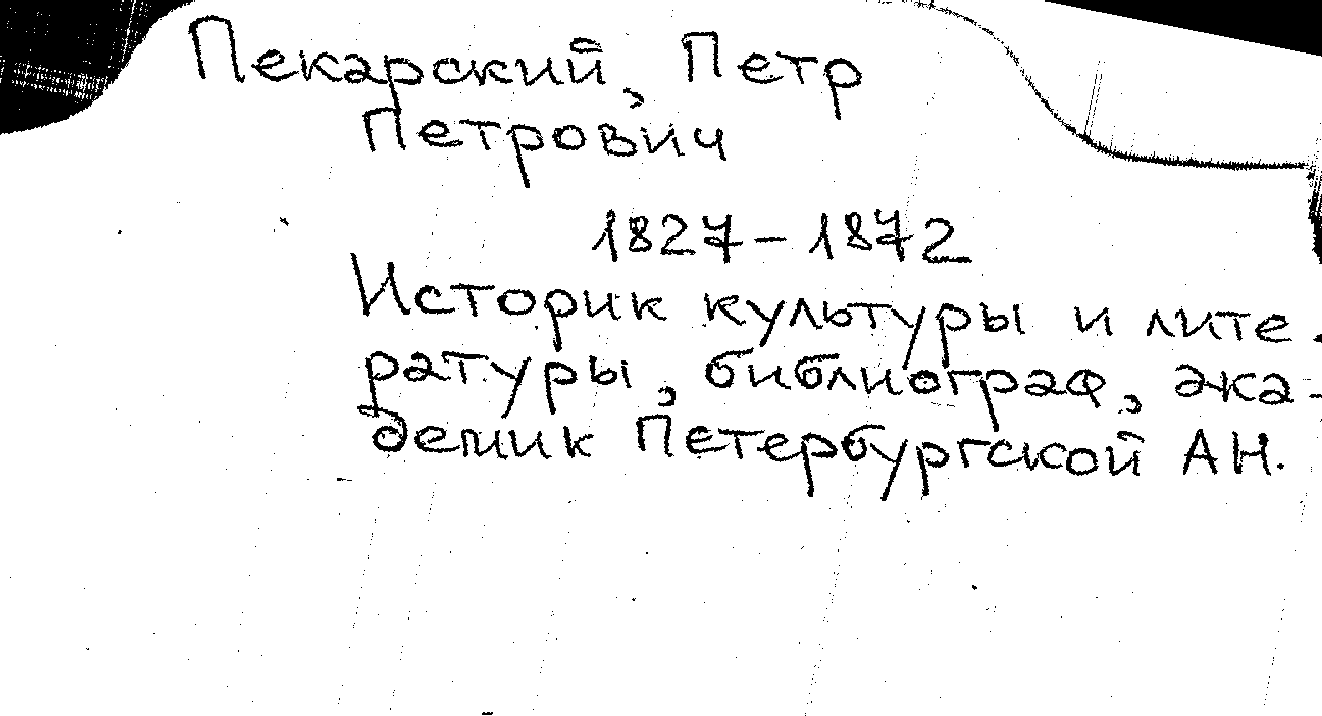 Пекарский, Петр
Петрович
1827-1872
Историк культуры и лите-
ратуры, библиограф, ака-
демик Петербургской АН.